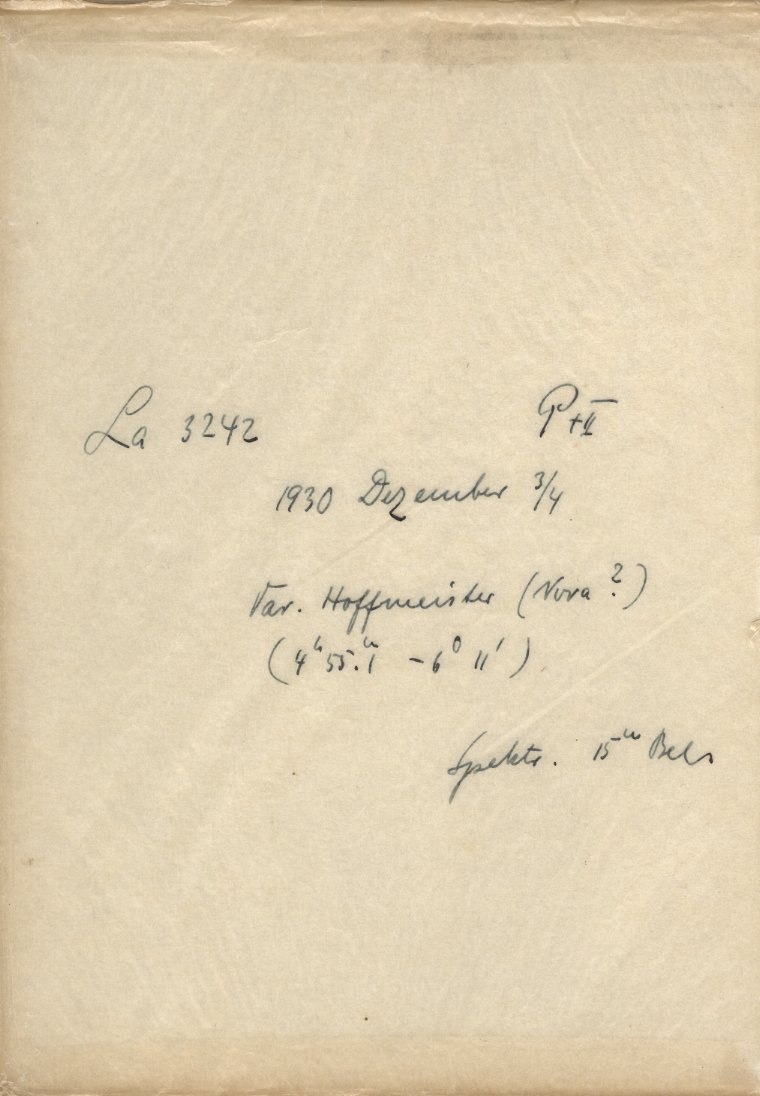 La 3242 P+II
1930 Dezember 3/4
Var. Hoffmeister (Nova?)
(4ʰ 55.ᵐ1 -6° 11')
Spektr. 15ᵐ Bel.